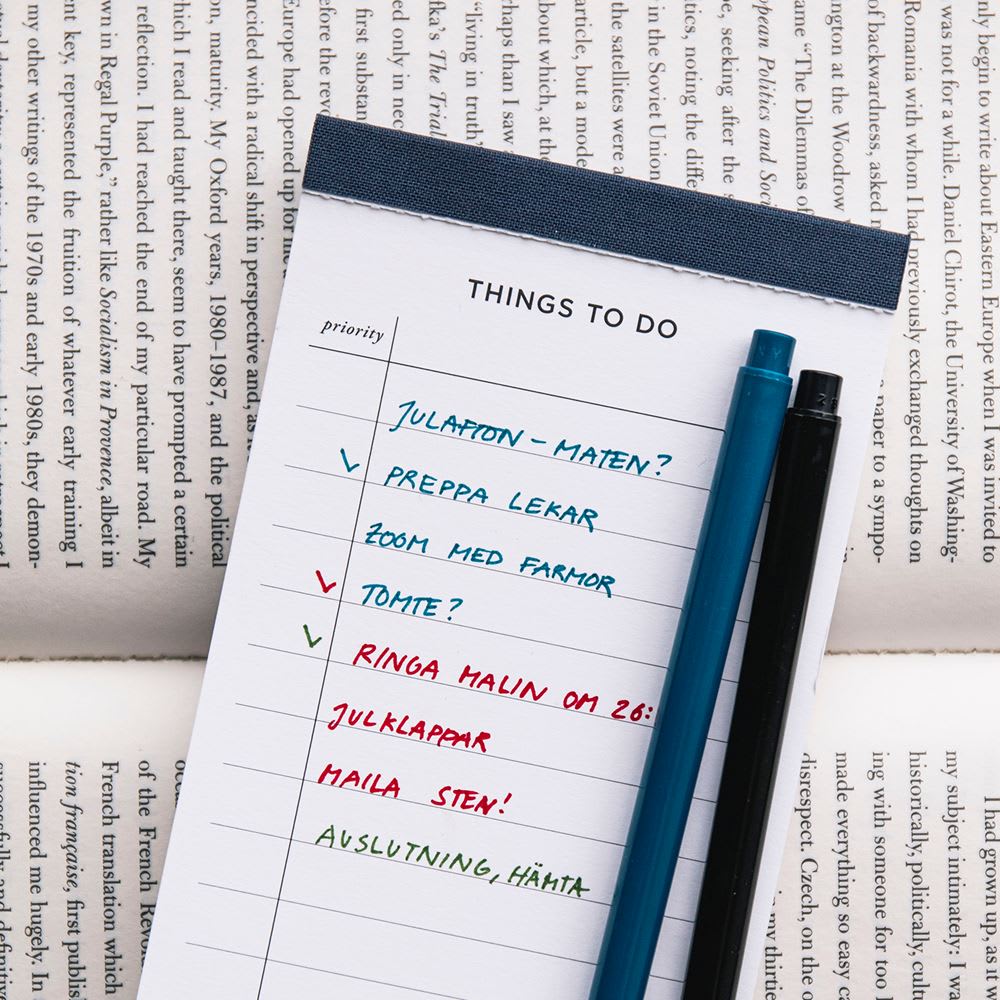 THINGS TO DO
priority
JULAFTON - MATEN?
PREPPA LEKAR
ZOOM MED FARMOR
TOMTE?
RINGA MALIN OM 26:
JULKLAPPAR
MAILA STEN!
AVSLUTNING, HÄMTA
begin to write about Eastern Europe when I was invited to
was not for a while. Daniel Chirot, the University of Washing-
Romania with whom I had previously exchanged thoughts on
of backwardness, asked
paper to a sympo-
at the Woodrow
“The Dilemmas of
Politics and
seeking after the
noting the
in the Soviet Union
the satellites were
article, but a
about which, at
than I saw
“living in truth”
only in
The Trial
first
the
Europe had opened up
with a radical shift in perspective and, as
maturity. My Oxford years, 1980–1987, and the political
I read and taught there, seem to have prompted a certain
reflection. I had reached the end of my particular road. My
in Regal Purple,” rather like Socialism in Provence, albeit in
key, represented the fruition of whatever early training I
my other writings of the 1970s and early 1980s, they demon-
I had grown up, as
my subject intimately: I
historically, politically,
ing with someone for too
made everything so easy
disrespect. Czech, on the
my
of the French
French translation which
tion française, first
influenced me hugely. In
successfully and